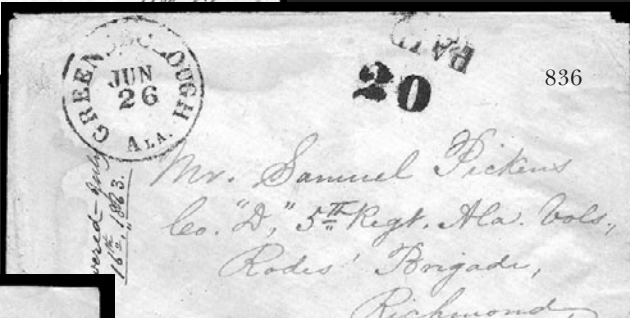 GREENSBOROUGH
JUN
26
ALA.
PAID
20
836
Mr. Samuel Pickens
Co. "D," 5th Regt. Ala. Vols.,
Rodes' Brigade,
Richmond,
16th, 1863.